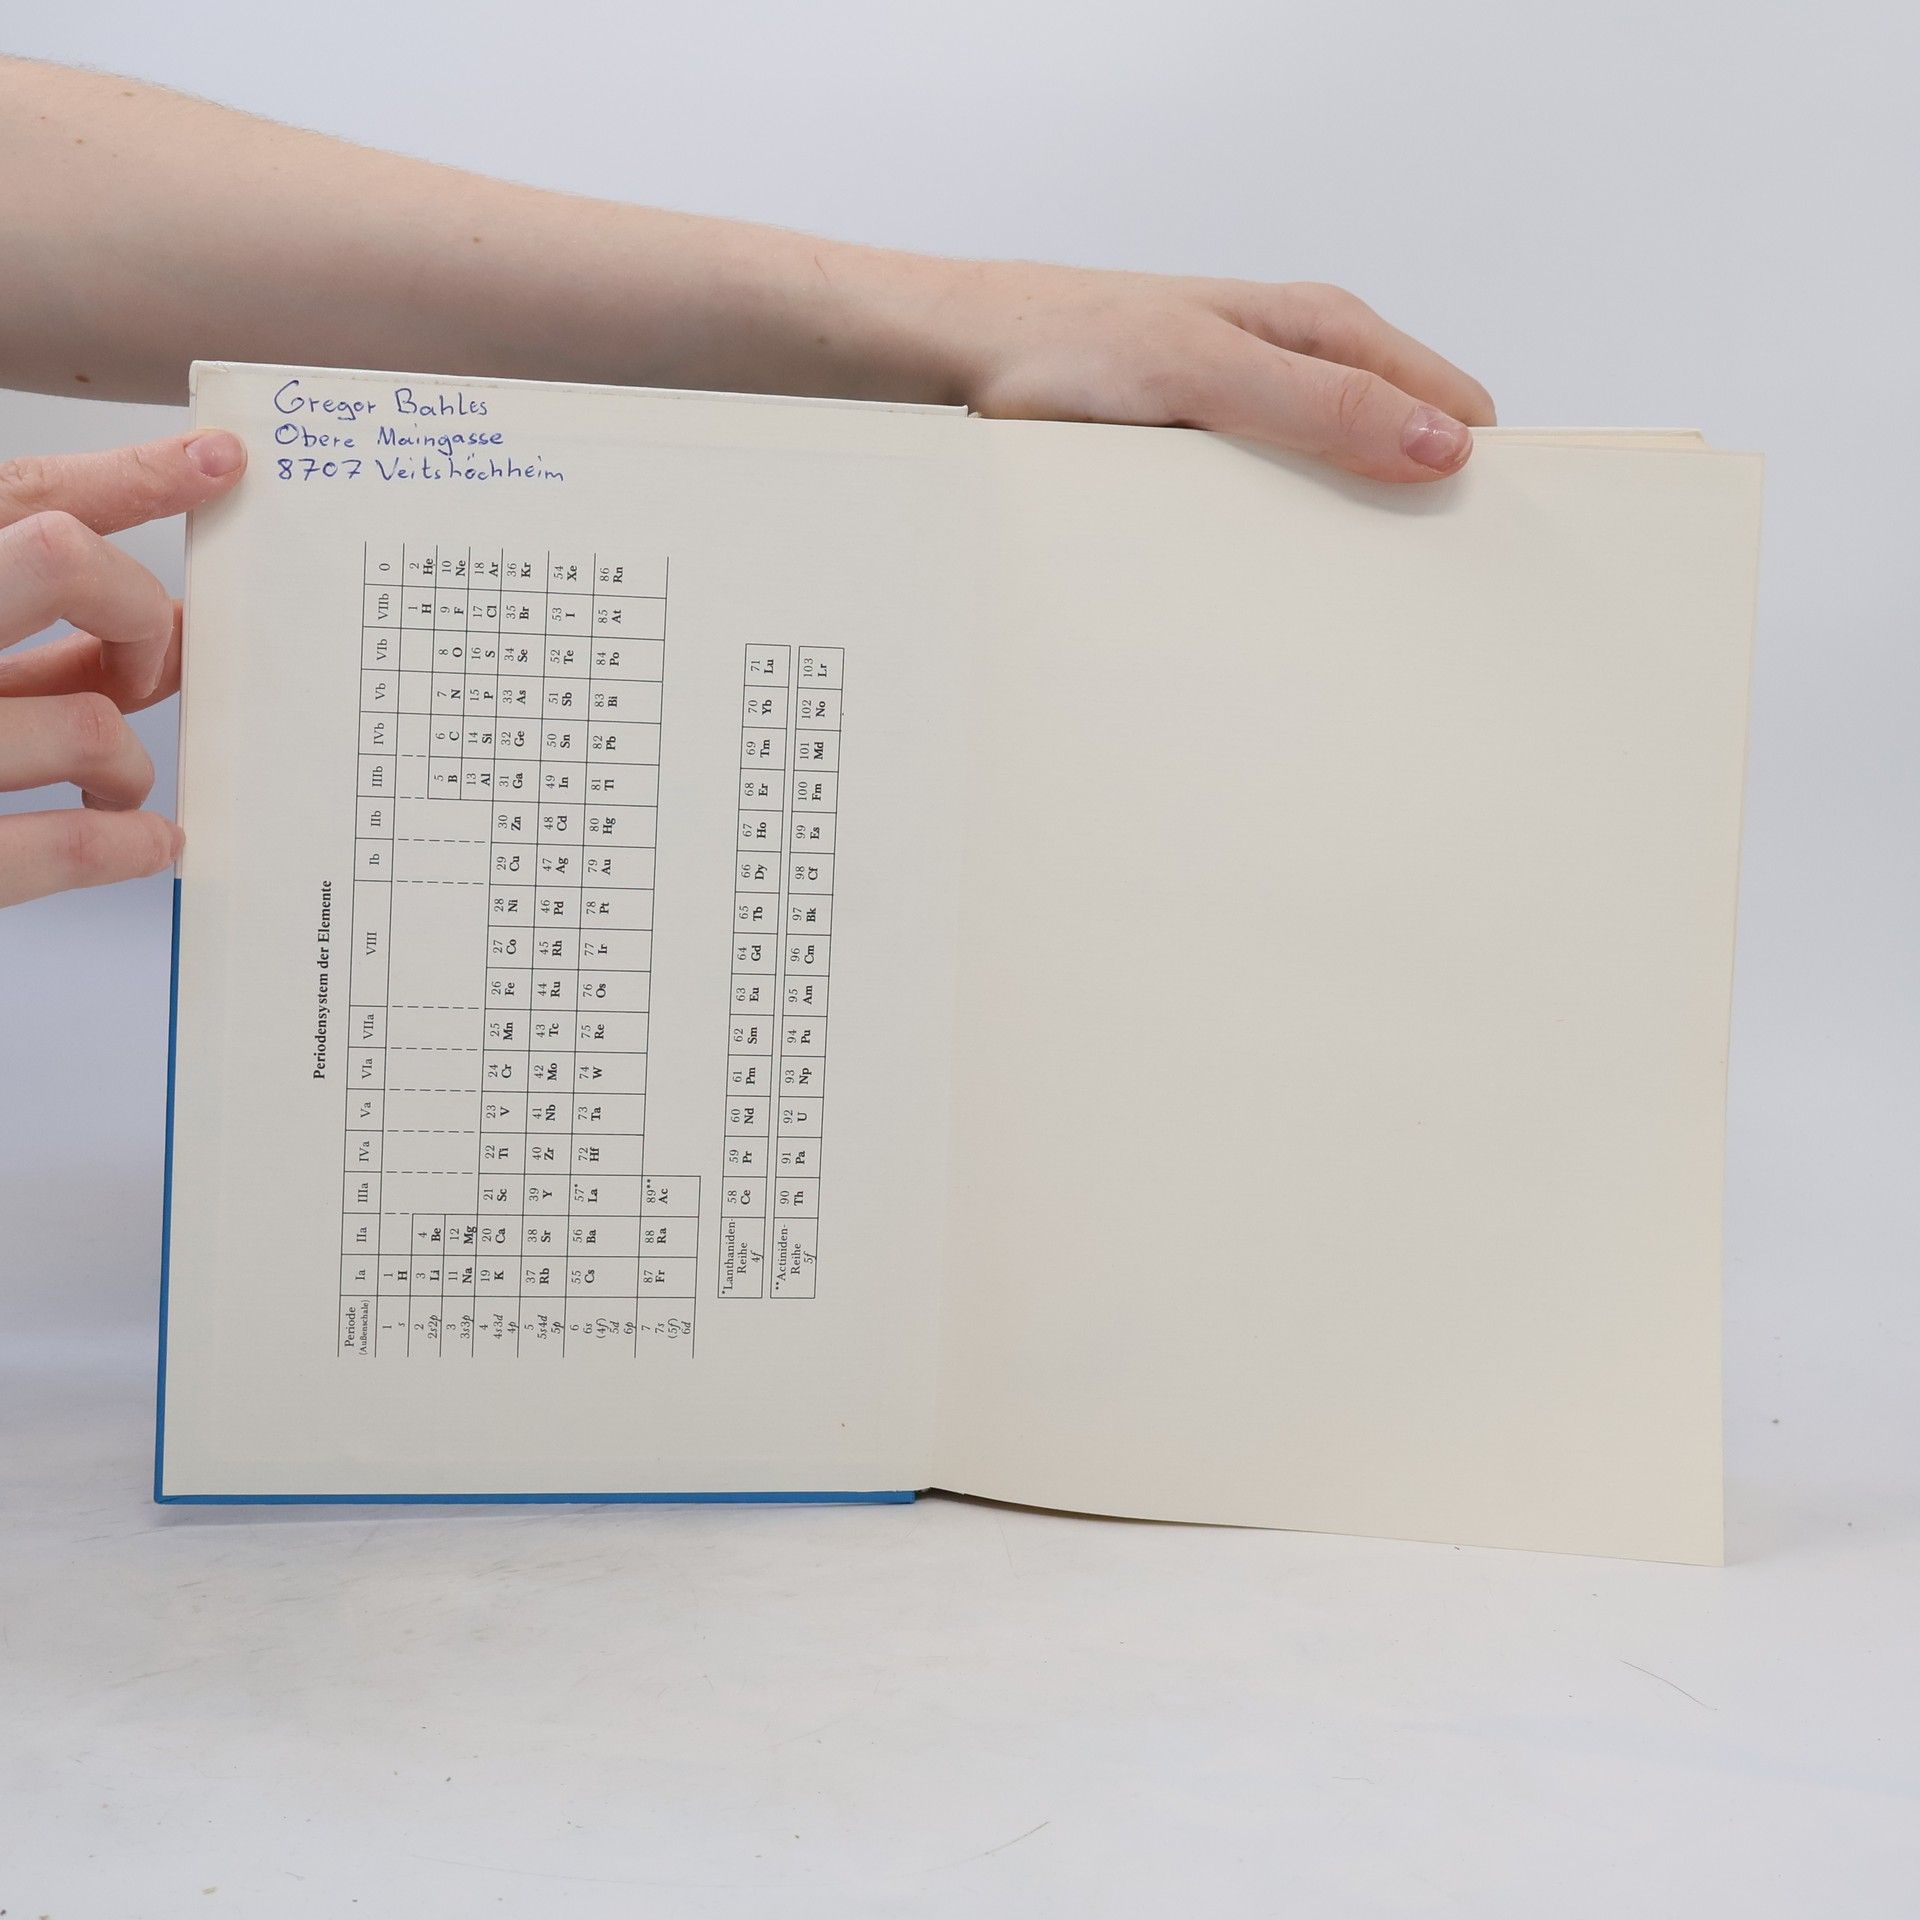 Gregor Bahles
Obere Maingasse
8707 Veitshöchheim
Periodensystem der Elemente
Periode (Außenschale) Ia IIa IIIa IVa Va VIa VIIa VIII Ib IIb IIIb IVb Vb VIb VIIb 0
1 1 1 2
s H H He
2 3 4 5 6 7 8 9 10
2s2p Li Be B C N O F Ne
3 11 12 13 14 15 16 17 18
3s3p Na Mg Al Si P S Cl Ar
4 19 20 21 22 23 24 25 26 27 28 29 30 31 32 33 34 35 36
4s3d K Ca Sc Ti V Cr Mn Fe Co Ni Cu Zn Ga Ge As Se Br Kr
4p
5 37 38 39 40 41 42 43 44 45 46 47 48 49 50 51 52 53 54
5s4d Rb Sr Y Zr Nb Mo Tc Ru Rh Pd Ag Cd In Sn Sb Te I Xe
5p
6 55 56 57* 72 73 74 75 76 77 78 79 80 81 82 83 84 85 86
6s Cs Ba La Hf Ta W Re Os Ir Pt Au Hg Tl Pb Bi Po At Rn
(4f)
5d
6p
7 87 88 89**
7s Fr Ra Ac
(5f)
6d
*Lanthaniden- 58 59 60 61 62 63 64 65 66 67 68 69 70 71
Reihe Ce Pr Nd Pm Sm Eu Gd Tb Dy Ho Er Tm Yb Lu
4f
**Actiniden- 90 91 92 93 94 95 96 97 98 99 100 101 102 103
Reihe Th Pa U Np Pu Am Cm Bk Cf Es Fm Md No Lr
5f